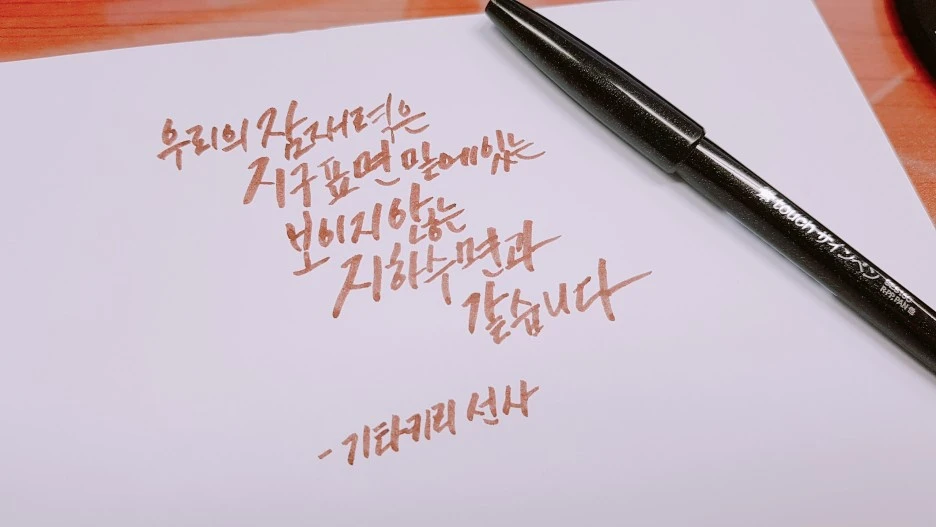 우리의 잠재력은
지구표면 밑에있는
보이지 않는
지하수면과
같습니다
- 기타키리 선사
touch サインペン